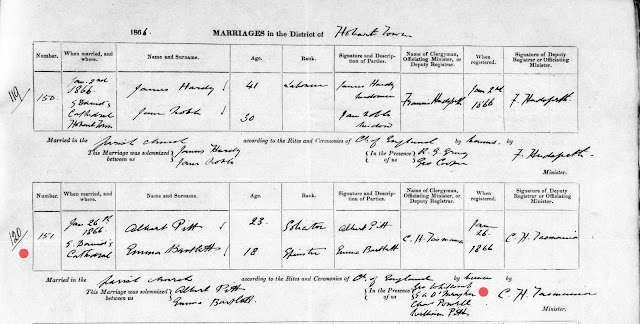 1866. MARRIAGES in the District of Hobart Town
Number. When married, and where. Name and Surname. Age. Rank. Signature and Description of Parties. Name of Clergyman, Officiating Minister, or Deputy Registrar. When registered. Signature of Deputy Registrar or Officiating Minister.
119
150 Jan. 2nd 1866 St David's Cathedral Hobart Town
James Hardy 41 Labourer James Hardy widower
Jane Noble 30 Jane Noble widow
Francis Hudspeth Jan 2nd 1866 F. Hudspeth
Married in the parish church according to the Rites and Ceremonies of Ch. of England by
This Marriage was solemnized between us James Hardy Jane Noble
In the Presence of us Geo Cooper
F. Hudspeth. Minister.
Number. When married, and where. Name and Surname. Age. Rank. Signature and Description of Parties. Name of Clergyman, Officiating Minister, or Deputy Registrar. When registered. Signature of Deputy Registrar or Officiating Minister.
120
151 Jan 26th 1866 St David's Cathedral
Albert Pitt 23. Solicitor Albert Pitt
Emma Bartlett 18 Spinster Emma Bartlett
C. H. Tasmania Jan 26 1866 C. H. Tasmania
Married in the parish church according to the Rites and Ceremonies of Ch. of England by license
This Marriage was solemnized between us Albert Pitt Emma Bartlett.
In the Presence of us Geo Whitcomb
Chas Powell
Pitt
C. H. Tasmania Minister.